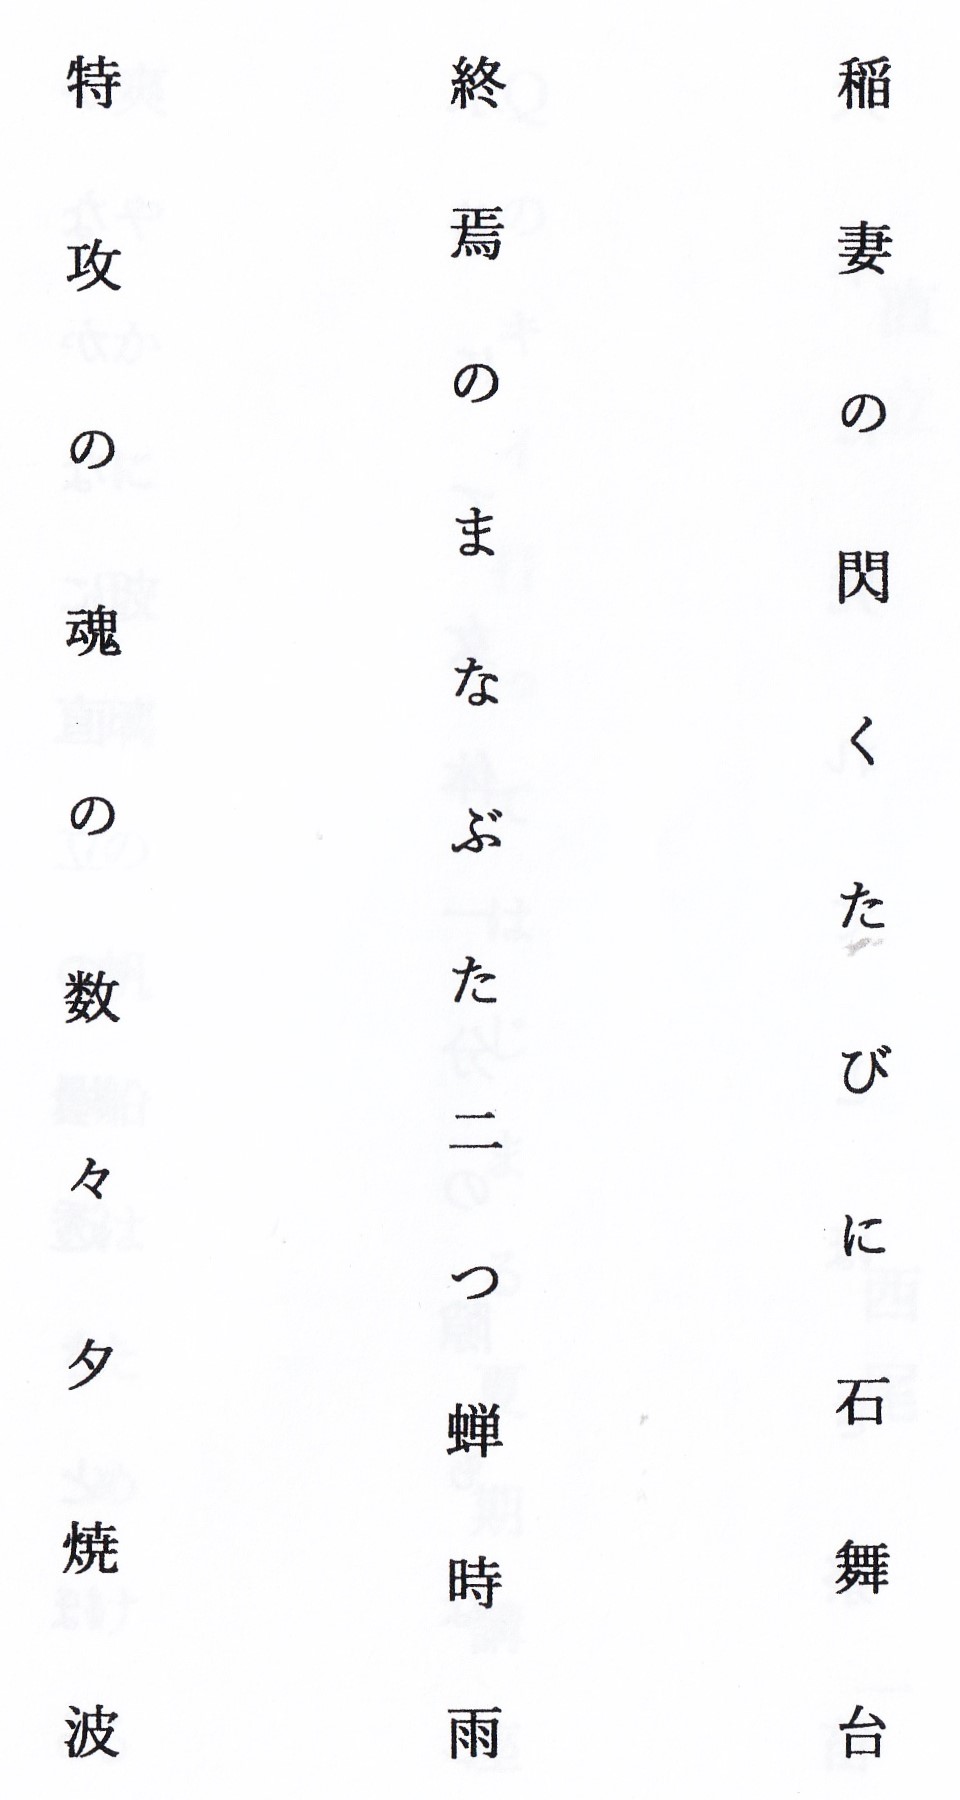 稲妻の閃くたびに石舞台
終焉のまなぶた二つ蝉時雨
特攻のの魂の数々夕焼波